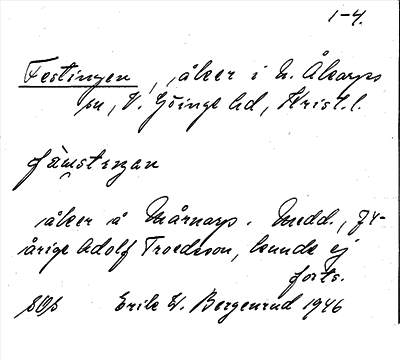 1-4.
Festingen, åker i N. Åkarps
sn, V. Göinge hd, Krist.l.
fæ̀stıŋan
åker å Mårnarp. Medd., 74-
årige Adolf Troedsson, kunde ej
forts.
SOS Erik W. Bergenrud 1946